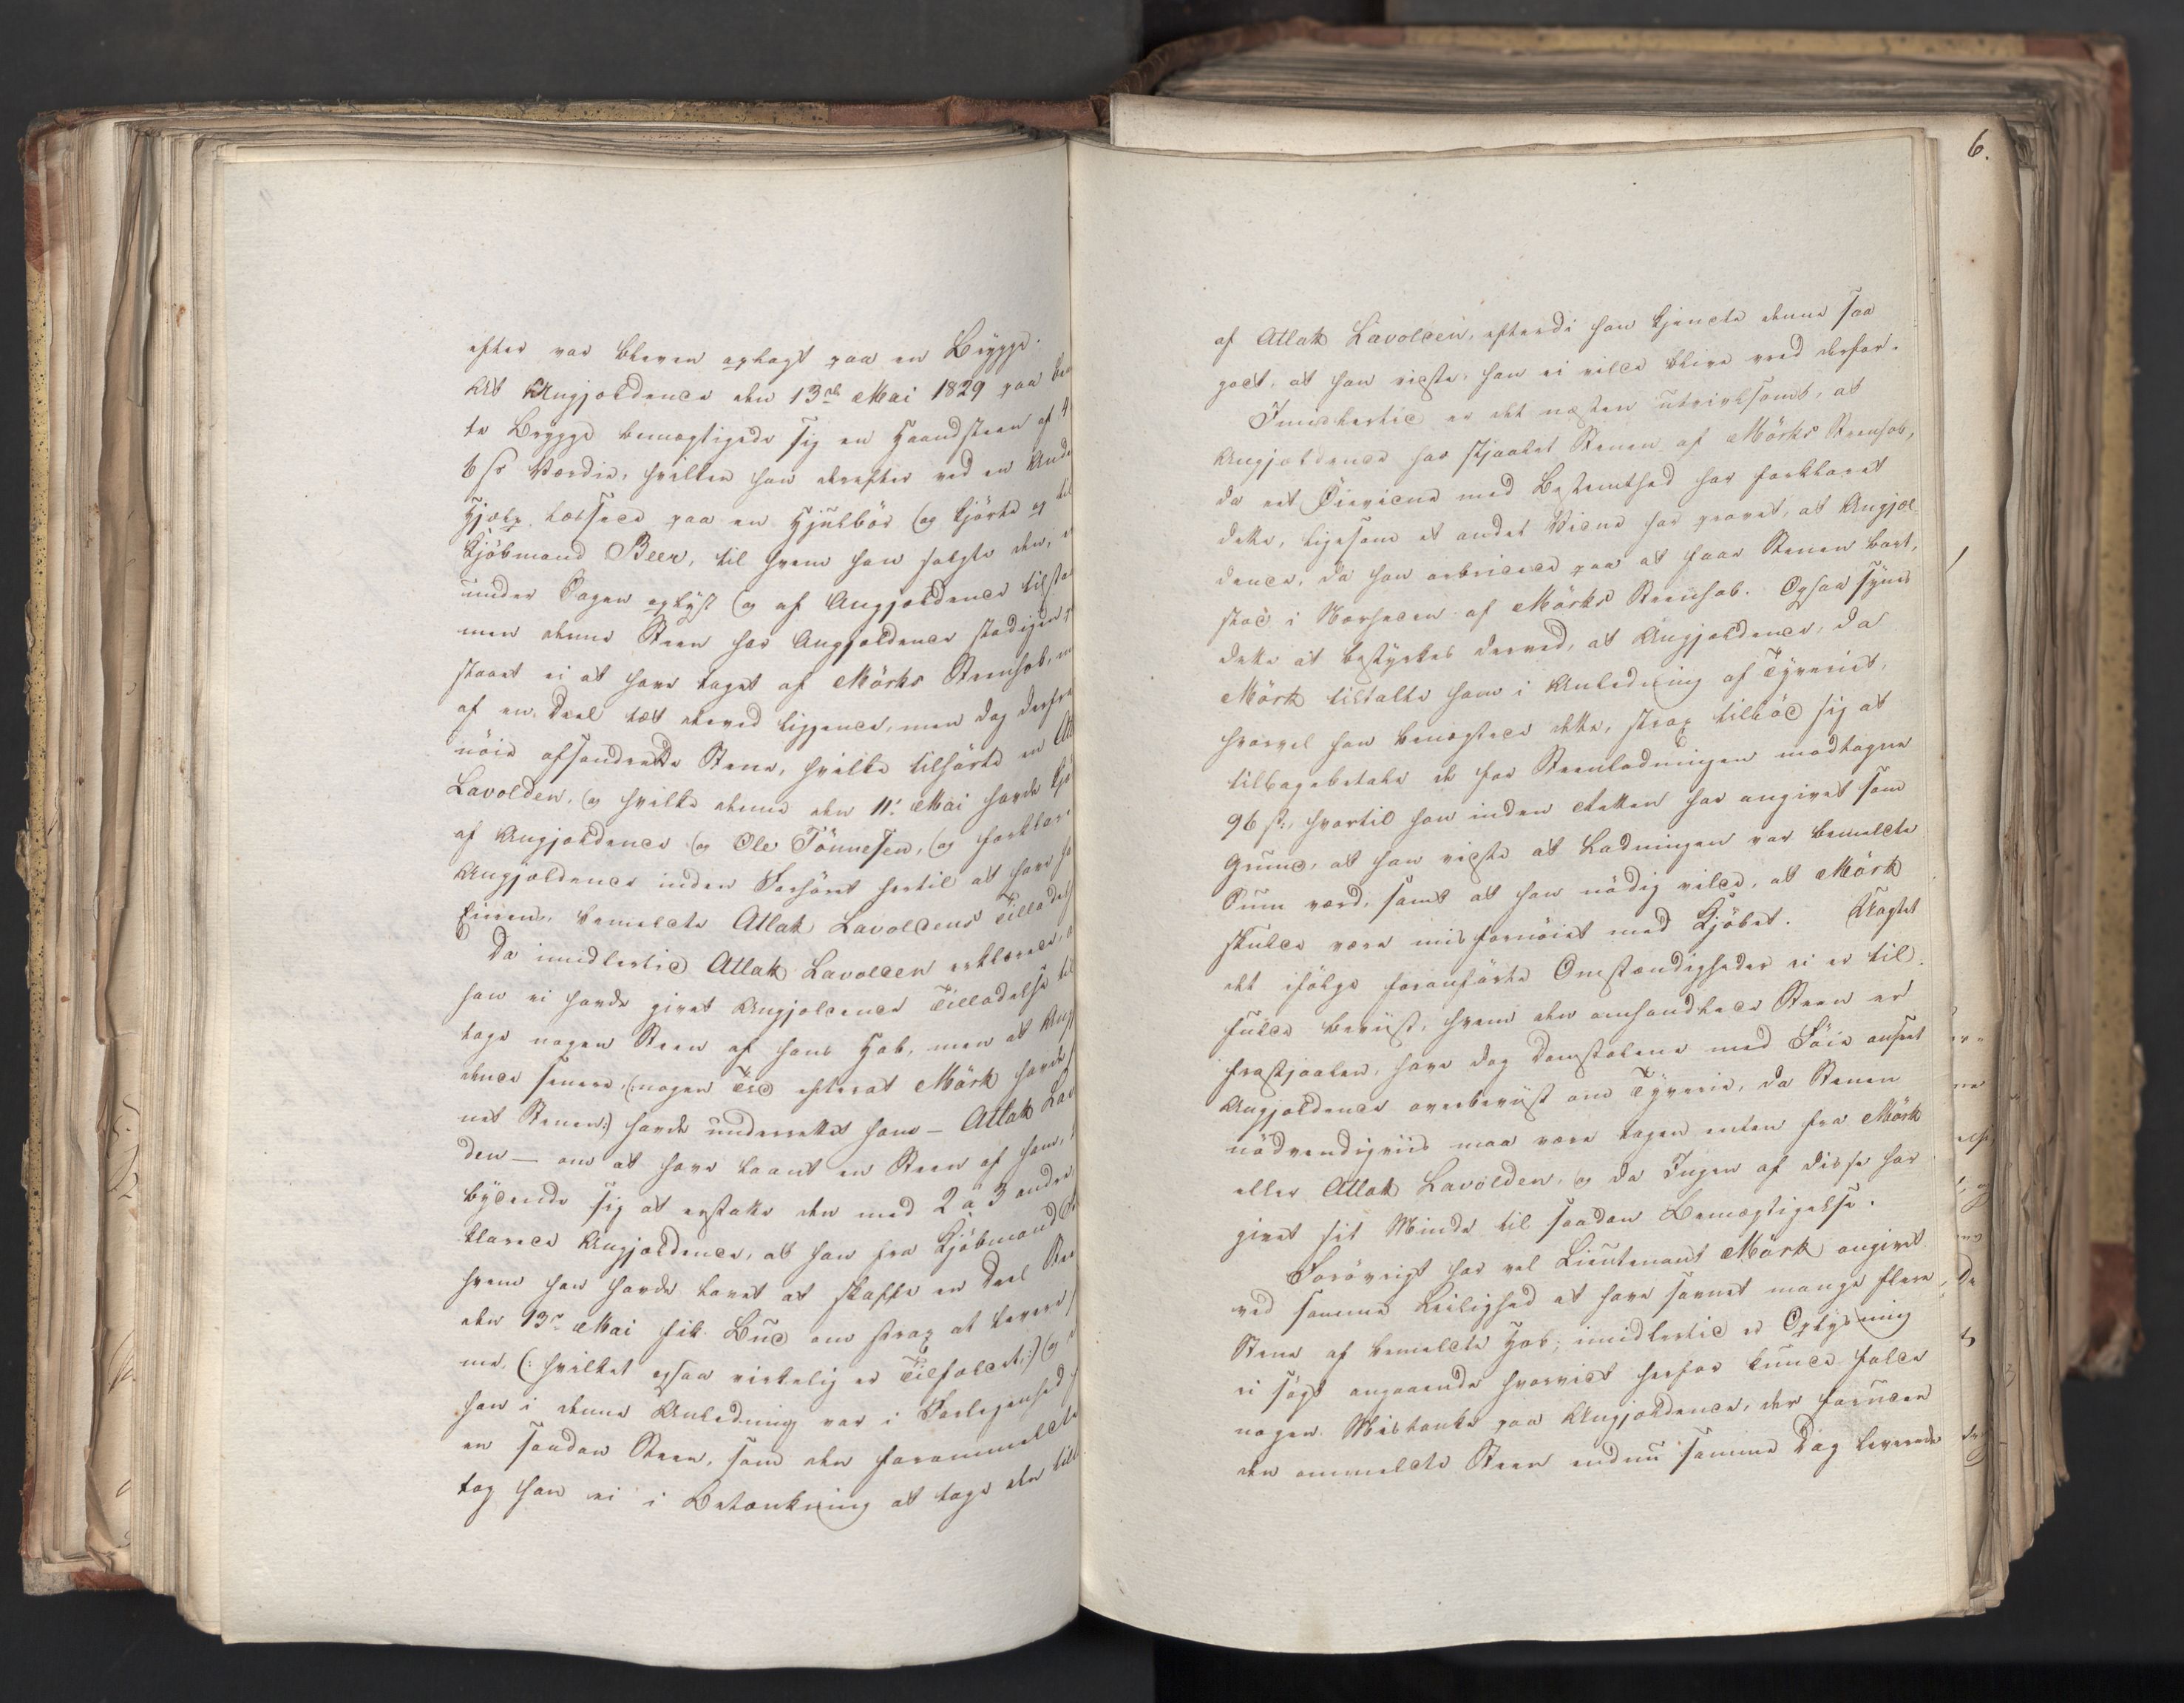 efter var bleven oplagt paa en Brygge.
At Angjældende den 13de Mai 1829 paa
te Brygge bemægtigede sig en Haandsteen af 4
6 s Værdie, hvilken han derefter ved en
Hjælp læssede paa en Hjulbör og kjörte op til
Kjöbmand Beer, til hvem han solgte den, e
under Sagen oplyst og af Angjældende
men denne Steen har Angjældende stadigen
staaet ei at have taget af Mörks Steenhob,
af en Deel tæt derved liggende, men dog derfra
nöie afsondrede Stene, hvilke tilhörte en
Lavolden, og hvilke denne den 11te Mai havde
af Angjældende og Ole Tönnesen, og
Angjældende inden Forhöret hertil at have
Eierens, bemeldte Atlak Lavoldens
Da imidlertid Atlak Lavolden
han ei havde givet Angjældende Tilladelse til
tage nogen Steen af hans Hob, men at
dende senere, (:nogen Tid efterat Mörk havde
net Stenen:) havde underrettet ham – Atlak
den – om at have laant en Steen af ham,
bydende sig at erstatte den med 2 a 3 andre
klarede Angjældende, at han fra Kjöbmand
hvem han havde lovet at skaffe en Deel
den 13de Mai fik Bud om strax at levere
me, (: hvilket ogsaa virkelig er Tilfældet:) og
han i denne Anledning var i Forlegenhed
en saadan Steen, som den forommeldte
tog han ei i Betænkning at tage den
6.
af Atlak Lavolden, efterdi han kjendte denne saa
godt, at han vidste, han ei vilde blive vred derfor.
Imidlertid er det næsten utvivlsomt, at
Angjældende har stjaalet Stenen af Mörks Steenhob,
da eet Öievidne med Bestemthed har forklaret
dette, ligesom et andet Vidne har provet, at Angjæl-
dende, da han arbeidede paa at faae Stenen bort,
stod i Nærheden af Mörks Steenhob. Ogsaa synes
dette at bestyrkes derved, at Angjældende, da
Mörk tiltalte ham i Anledning af Tyveriet,
hvorvel han benægtede dette, strax tilböd sig at
tilbagebetale de for Steenladningen modtagne
96 s:, hvortil han inden Retten har angivet som
Grund, at han vidste at Ladningen var bemeldte
Sum værd, samt at han nödig vilde, at Mörk
skulde være misfornöiet med Kjöbet. Uagtet
det ifölge foranförte Omstændigheder ei er til-
fulde beviist, hvem den omhandlede Steen er
frastjaalen, have dog Domstolene med Föie anseet
Angjældende overbeviist om Tyverie, da Stenen
nödvendigviis maa være tagen enten fra Mörk
eller Atlak Lavolden, og da Ingen af disse har
givet sit Minde til saadan Bemægtigelse.
Forövrigt har vel Lieutenant Mörk angivet
ved samme Leilighed at have savnet mange flere
Stene af bemeldte Hob; imidlertid er Oplysning
ei sögt angaaende hvorvidt herfor kunde falde
nogen Mistanke paa Angjældende, der foruden
den ommeldte Steen endnu samme Dag leverede